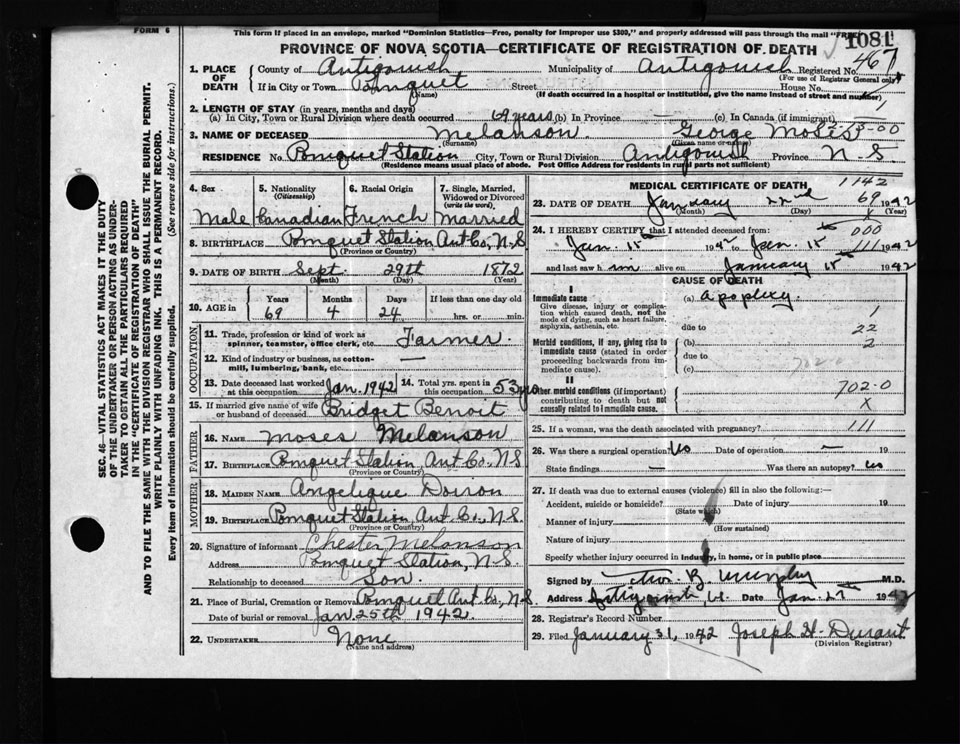 FORM 6
This form if placed in an envelope, marked "Dominion Statistics—Free, penalty for improper use $300," and properly addressed will pass through the mail "FREE"
1081
PROVINCE OF NOVA SCOTIA—CERTIFICATE OF REGISTRATION OF DEATH
1. PLACE OF DEATH County of Antigonish Municipality of Antigonish Registered No. 467
(For use of Registrar General only)
If in City or Town Pomquet Street House No.
(Name) (If death occurred in a hospital or institution, give the name instead of street and number)
2. LENGTH OF STAY (in years, months and days)
(a) In City, Town or Rural Division where death occurred 69 years (b) In Province — (c) In Canada (if immigrant)
3. NAME OF DECEASED Melanson George Moses
(Surname) (Given name or names)
RESIDENCE No. Pomquet Station City, Town or Rural Division Antigonish Province N-S
(Residence means usual place of abode. Post Office Address for residents in rural parts not sufficient)
4. Sex
Male
5. Nationality (Citizenship)
Canadian
6. Racial Origin
French
7. Single, Married, Widowed or Divorced (write the word)
Married
8. BIRTHPLACE Pomquet Station Ant Co, N-S
(Province or Country)
9. DATE OF BIRTH Sept. 29th 1872
(Month) (Day) (Year)
10. AGE in Years Months Days If less than one day
69 4 24 hrs. or min.
OCCUPATION
11. Trade, profession or kind of work as spinner, teamster, office clerk, etc. Farmer.
12. Kind of industry or business, as cotton-mill, lumbering, bank, etc. —
13. Date deceased last worked at this occupation Jan. 1942
14. Total yrs. spent in this occupation 53 yrs
15. If married give name of wife or husband of deceased Bridget Benoit
FATHER
16. NAME Moses Melanson
17. BIRTHPLACE Pomquet Station, Ant Co. N.S
(Province or Country)
MOTHER
18. MAIDEN NAME Angelique Doiron
19. BIRTHPLACE Pomquet Station Ant. Co., N.S.
(Province or Country)
20. Signature of informant Chester Melanson
Address Pomquet Station, N-S.
Relationship to deceased Son.
21. Place of Burial, Cremation or Removal Pomquet Ant. Co, N.S.
Date of burial or removal Jan. 25th 1942.
22. UNDERTAKER None
(Name and address)
MEDICAL CERTIFICATE OF DEATH 1142
23. DATE OF DEATH January 22nd 1942
69
(Month) (Day) (Year)
X
24. I HEREBY CERTIFY that I attended deceased from: 000
Jan. 15 1942 to Jan 15 1942
111
and last saw him alive on January 15 1942
CAUSE OF DEATH
I
Immediate cause (a) Apoplexy.
Give disease, injury or complication which caused death, not the mode of dying, such as heart failure, asphyxia, asthenia, etc.
1
due to 22
Morbid conditions, if any, giving rise to immediate cause (stated in order proceeding backwards from immediate cause). (b) 2
due to
(c)
II
Other morbid conditions (if important) contributing to death but not causally related to immediate cause. 702-0
X
25. If a woman, was the death associated with pregnancy? 111
26. Was there a surgical operation? No Date of operation —
State findings — Was there an autopsy? no
27. If death was due to external causes (violence) fill in also the following:—
Accident, suicide or homicide? Date of injury 19
(State which)
Manner of injury
(How sustained)
Nature of injury
Specify whether injury occurred in industry, in home, or in public place
Signed by Murphy M.D.
Address Date Jan. 1942
28. Registrar's Record Number
29. Filed January 31, 1942 Joseph H. Durant
(Division Registrar)
SEC. 46—VITAL STATISTICS ACT MAKES IT THE DUTY OF THE UNDERTAKER OR PERSON ACTING AS UNDERTAKER TO OBTAIN ALL THE PARTICULARS REQUIRED IN THE "CERTIFICATE OF REGISTRATION OF DEATH"
AND TO FILE THE SAME WITH THE DIVISION REGISTRAR WHO SHALL ISSUE THE BURIAL PERMIT.
WRITE PLAINLY WITH UNFADING INK. THIS IS A PERMANENT RECORD.
Every item of information should be carefully supplied. (See reverse side for instructions.)